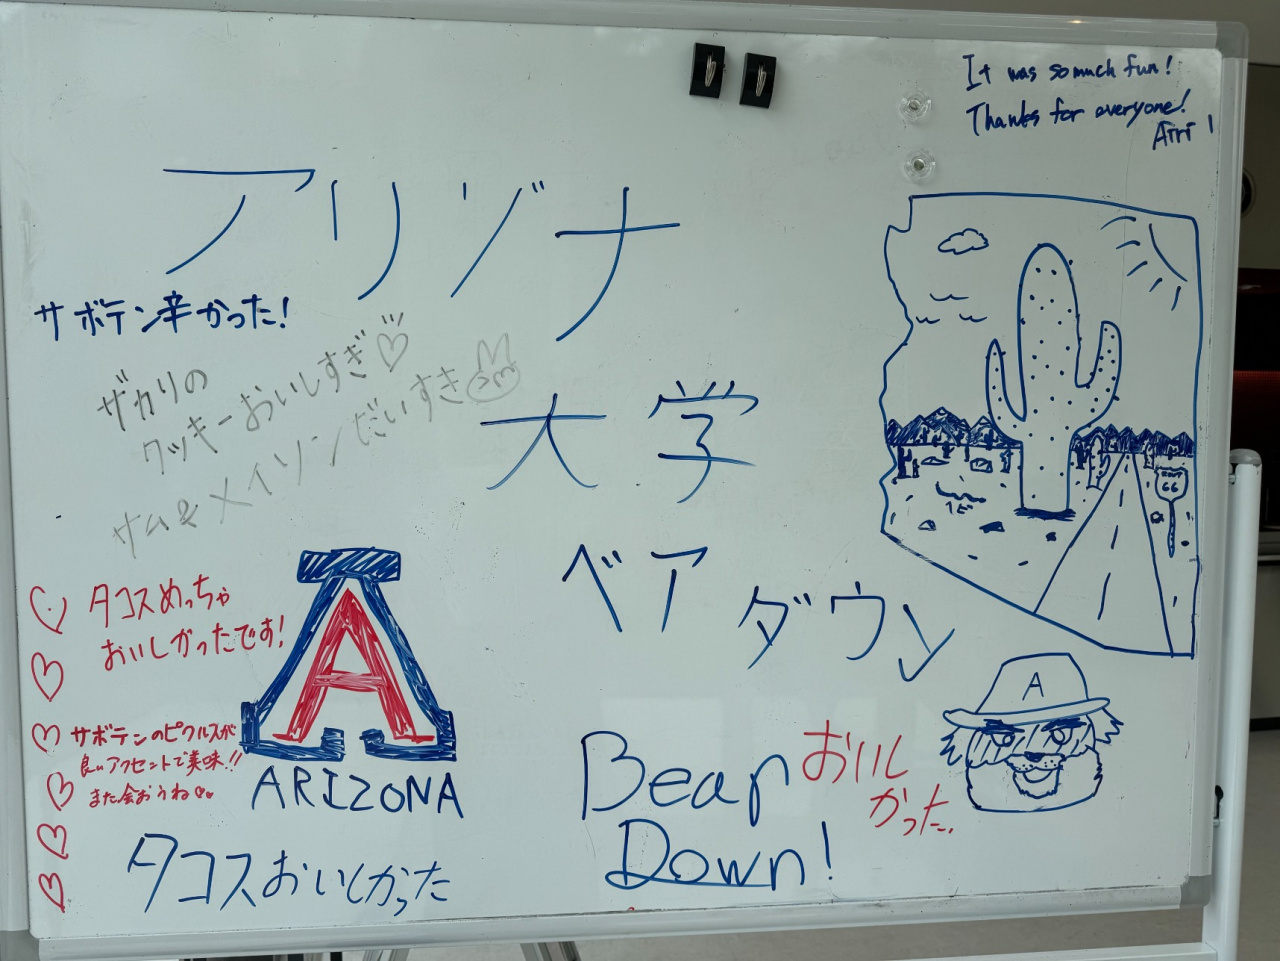 It was so much fun!
Thanks for everyone!
Airi
アリゾナ
大学
ベアダウン
Bear
Down!
サボテン辛かった!
ザカリの
クッキーおいしすぎ♡
サム&メイソンだいすき
タコスめっちゃ
おいしかったです!
サボテンのピクルスが
良いアクセントで美味!!
また会おうね
A
ARIZONA
タコスおいしかった
おいし
かった.
A
ROUTE
66